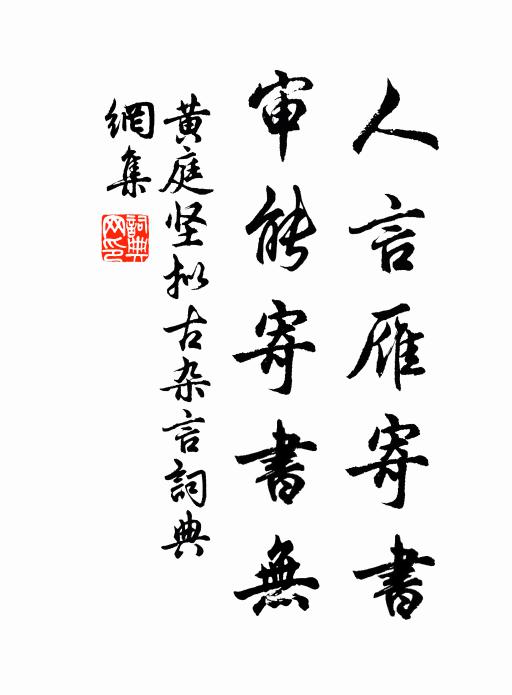 人言雁寄書
审能寄書無
黄庭坚拟古杂言詞典
網集
詞典網印